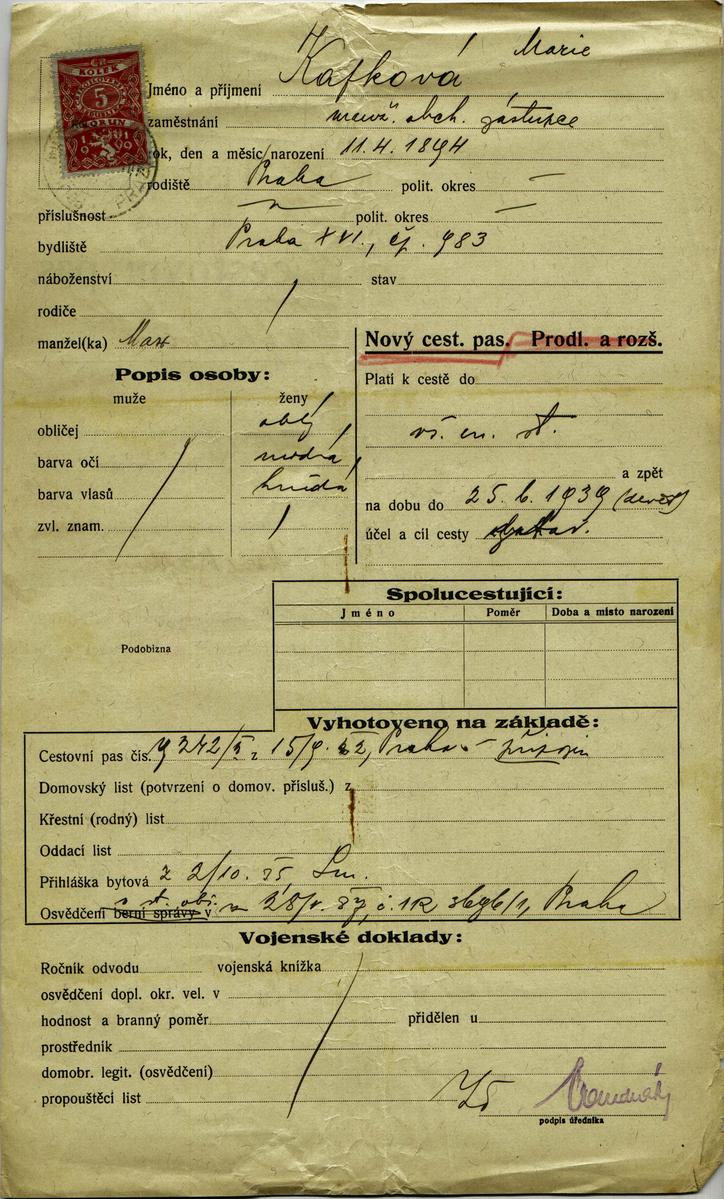 Kafková Marie
Jméno a příjmení
zaměstnání manž. obch. zástupce
rok, den a měsíc narození 11.4.1894
rodiště Praha polit. okres —
příslušnost — " — polit. okres —
bydliště Praha XVI., čp. 983
náboženství stav
rodiče
manžel(ka) Max
Nový cest. pas. Prodl. a rozš.
Popis osoby:
muže ženy
obličej oblý
barva očí modrá
barva vlasů hnědá
zvl. znam.
Platí k cestě do
vš. en. st.
a zpět
na dobu do 25.6.1939
účel a cíl cesty
Spolucestující:
Jméno Poměr Doba a místo narození
Podobizna
Vyhotoveno na základě:
Cestovní pas čís. Praha
Domovský list (potvrzení o domov. přísluš.) z
Křestní (rodný) list
Oddací list
Přihláška bytová z 2/10. 35 Sm.
Osvědčení berní správy v Praha
Vojenské doklady:
Ročník odvodu vojenská knížka
osvědčení dopl. okr. vel. v
hodnost a branný poměr přidělen u
prostředník
domobr. legit. (osvědčení)
propouštěcí list
podpis úředníka
KOLEK
5
KORUN
1919